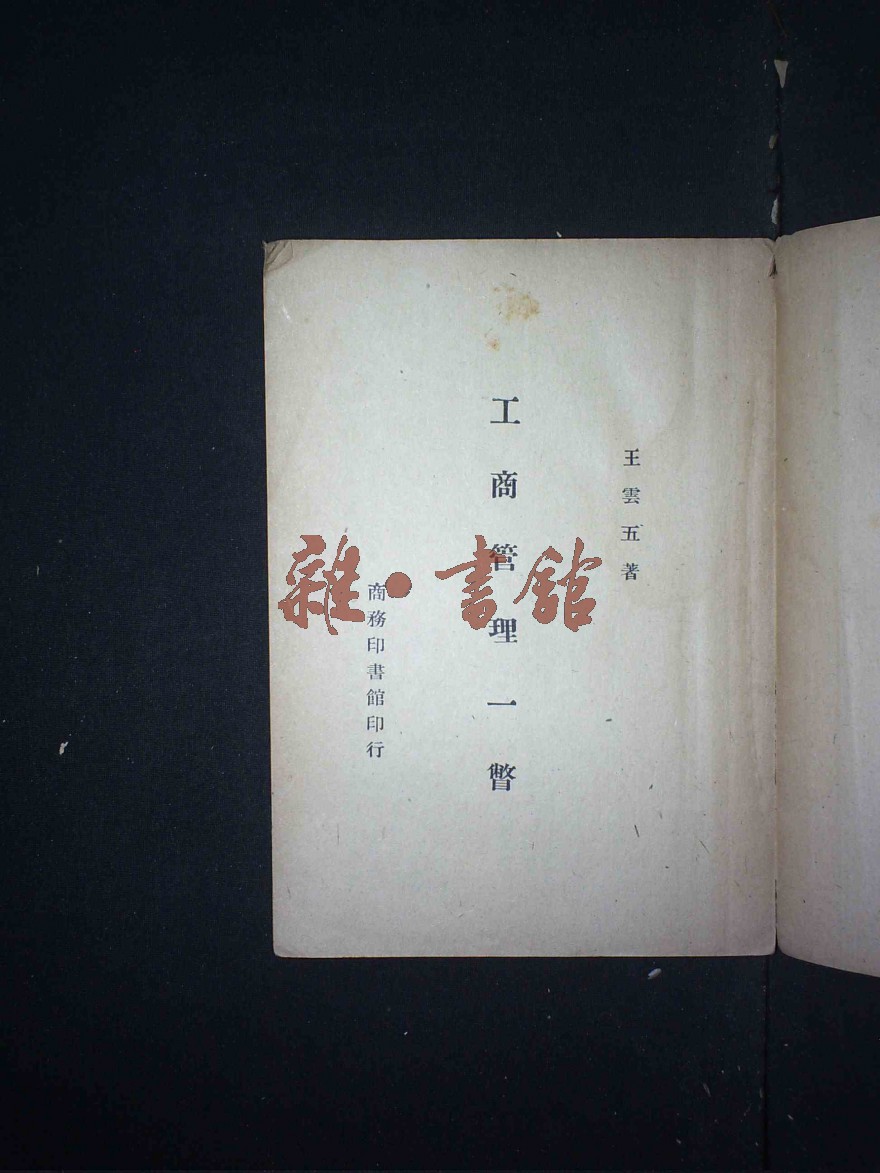 王雲五著
工商管理一瞥
商務印書館印行
雜·書館